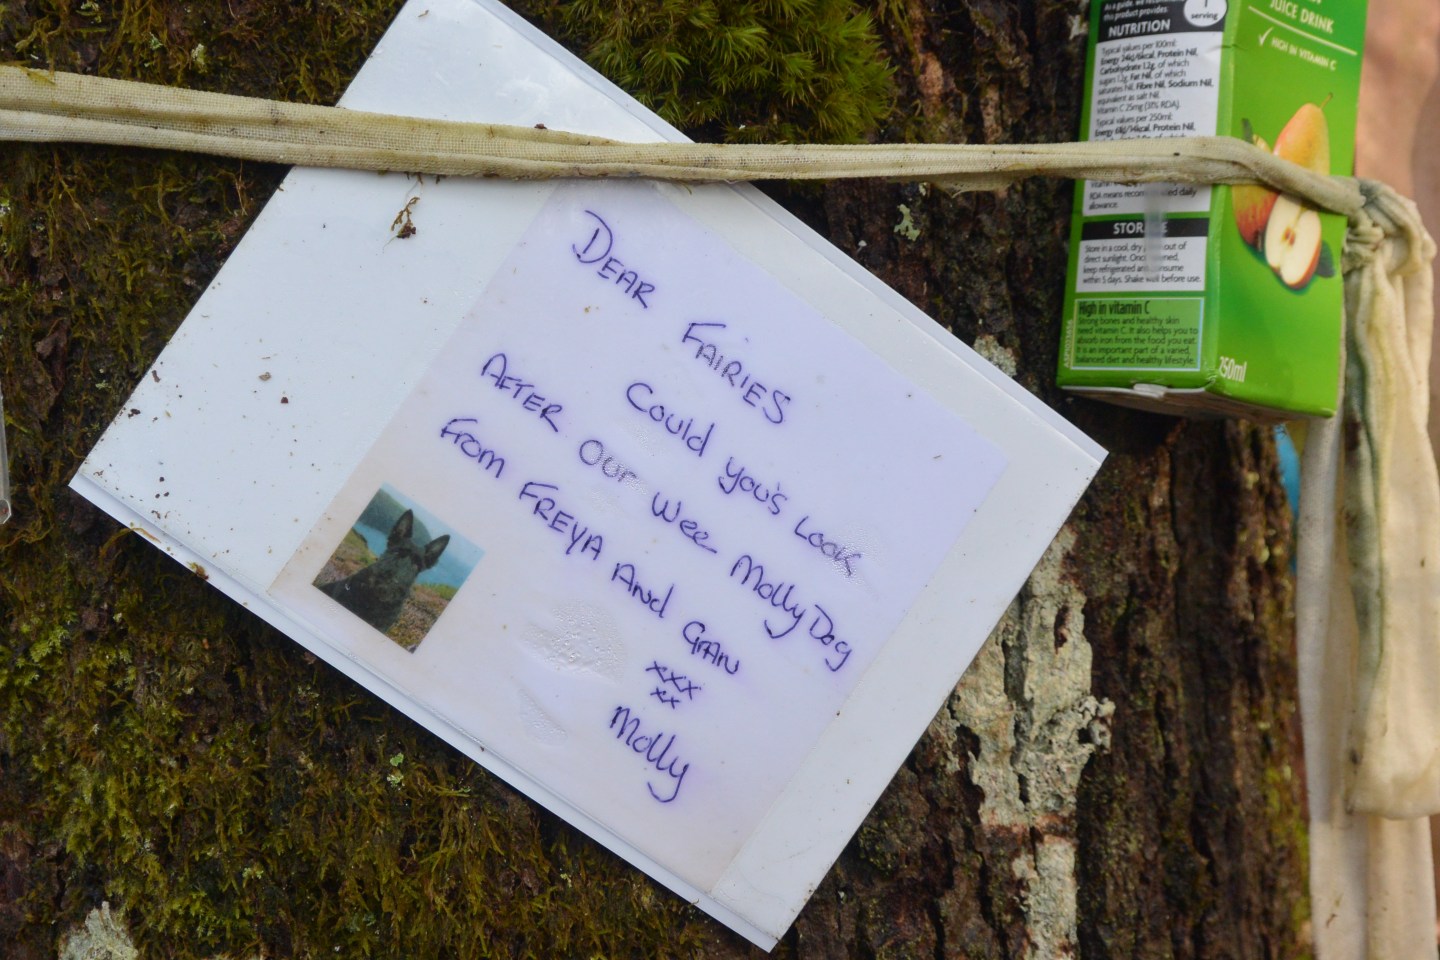 DEAR FAIRIES
Could you's Look
AFTER Our Wee Molly Dog
From FREYA And GRAN
xxx
xx
Molly
JUICE DRINK
✓ HIGH IN VITAMIN C
250ml
this product provides
1
serving
NUTRITION
Typical values per 100ml:
Carbohydrate 1.2g, of which
saturates Nil, Fibre Nil, Sodium Nil,
equivalent as salt Nil.
Vitamin C 25mg (31% RDA).
Typical values per 250ml:
allowance.
Store in a cool, dry out of
direct sunlight. Once
keep refrigerated
within 5 days. Shake well before use.
High in vitamin C
Strong bones and healthy skin
need vitamin C. It also helps you to
absorb iron from the food you eat.
It is an important part of a varied,
balanced diet and healthy lifestyle.